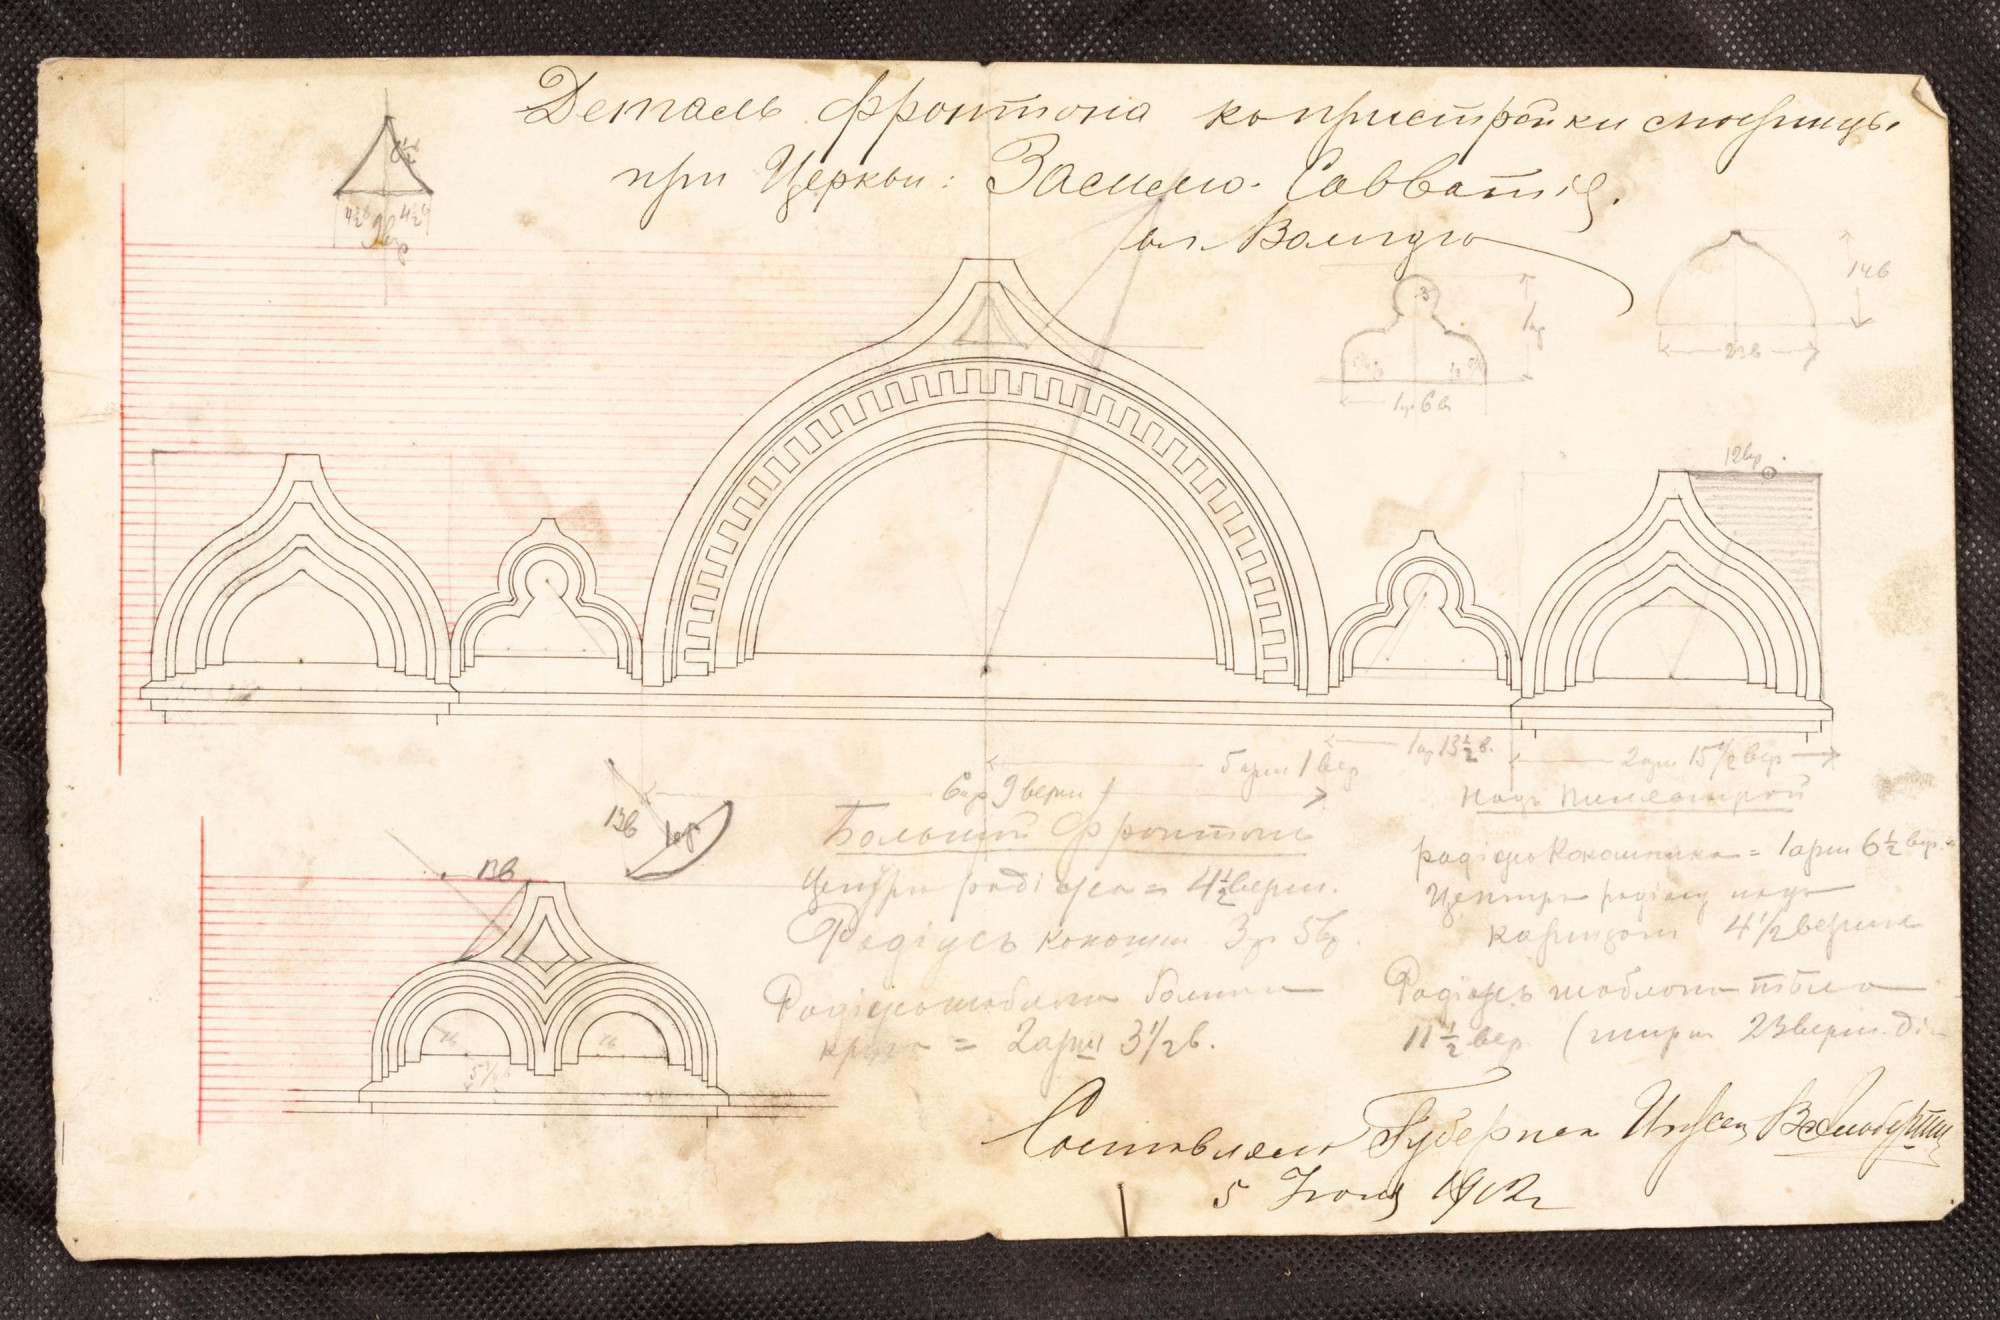 Деталь фронтона к пристройки
при Церкви: Зосимо-Савватія.
въ Вологдѣ
4½в 4½в
9вр
3
1ар
1ар 6в
14в
23в
12вр
5 арш 1 вер
1ар 13½в.
2арш 15½ вер
6ар 9 верш
Большой Фронтонъ
Центръ радіуса = 4½верш.
Радіусъ кокошн 3ар 5вр.
Радіусъ шаблона большого
круга = 2арш 3½в.
Надъ Пилястрой
радіусъ Кокошника = 1арш 6½ вер.
Центръ радіуса надъ
карнизом 4½ верш
Радіусъ шаблона
11½ вер (шир 23 верш.
13в
Составлялъ Губернск Инжен
5 Іюня 1912г